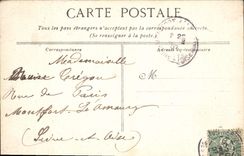 CARTE POSTALE
Tous les pays étrangers n'acceptent pas la correspondance au recto.
(Se renseigner à la poste.)
Correspondance
Adresse
Mademoiselle
M
Rue de Paris
Montfort l'Amaury
Seine-et-Oise